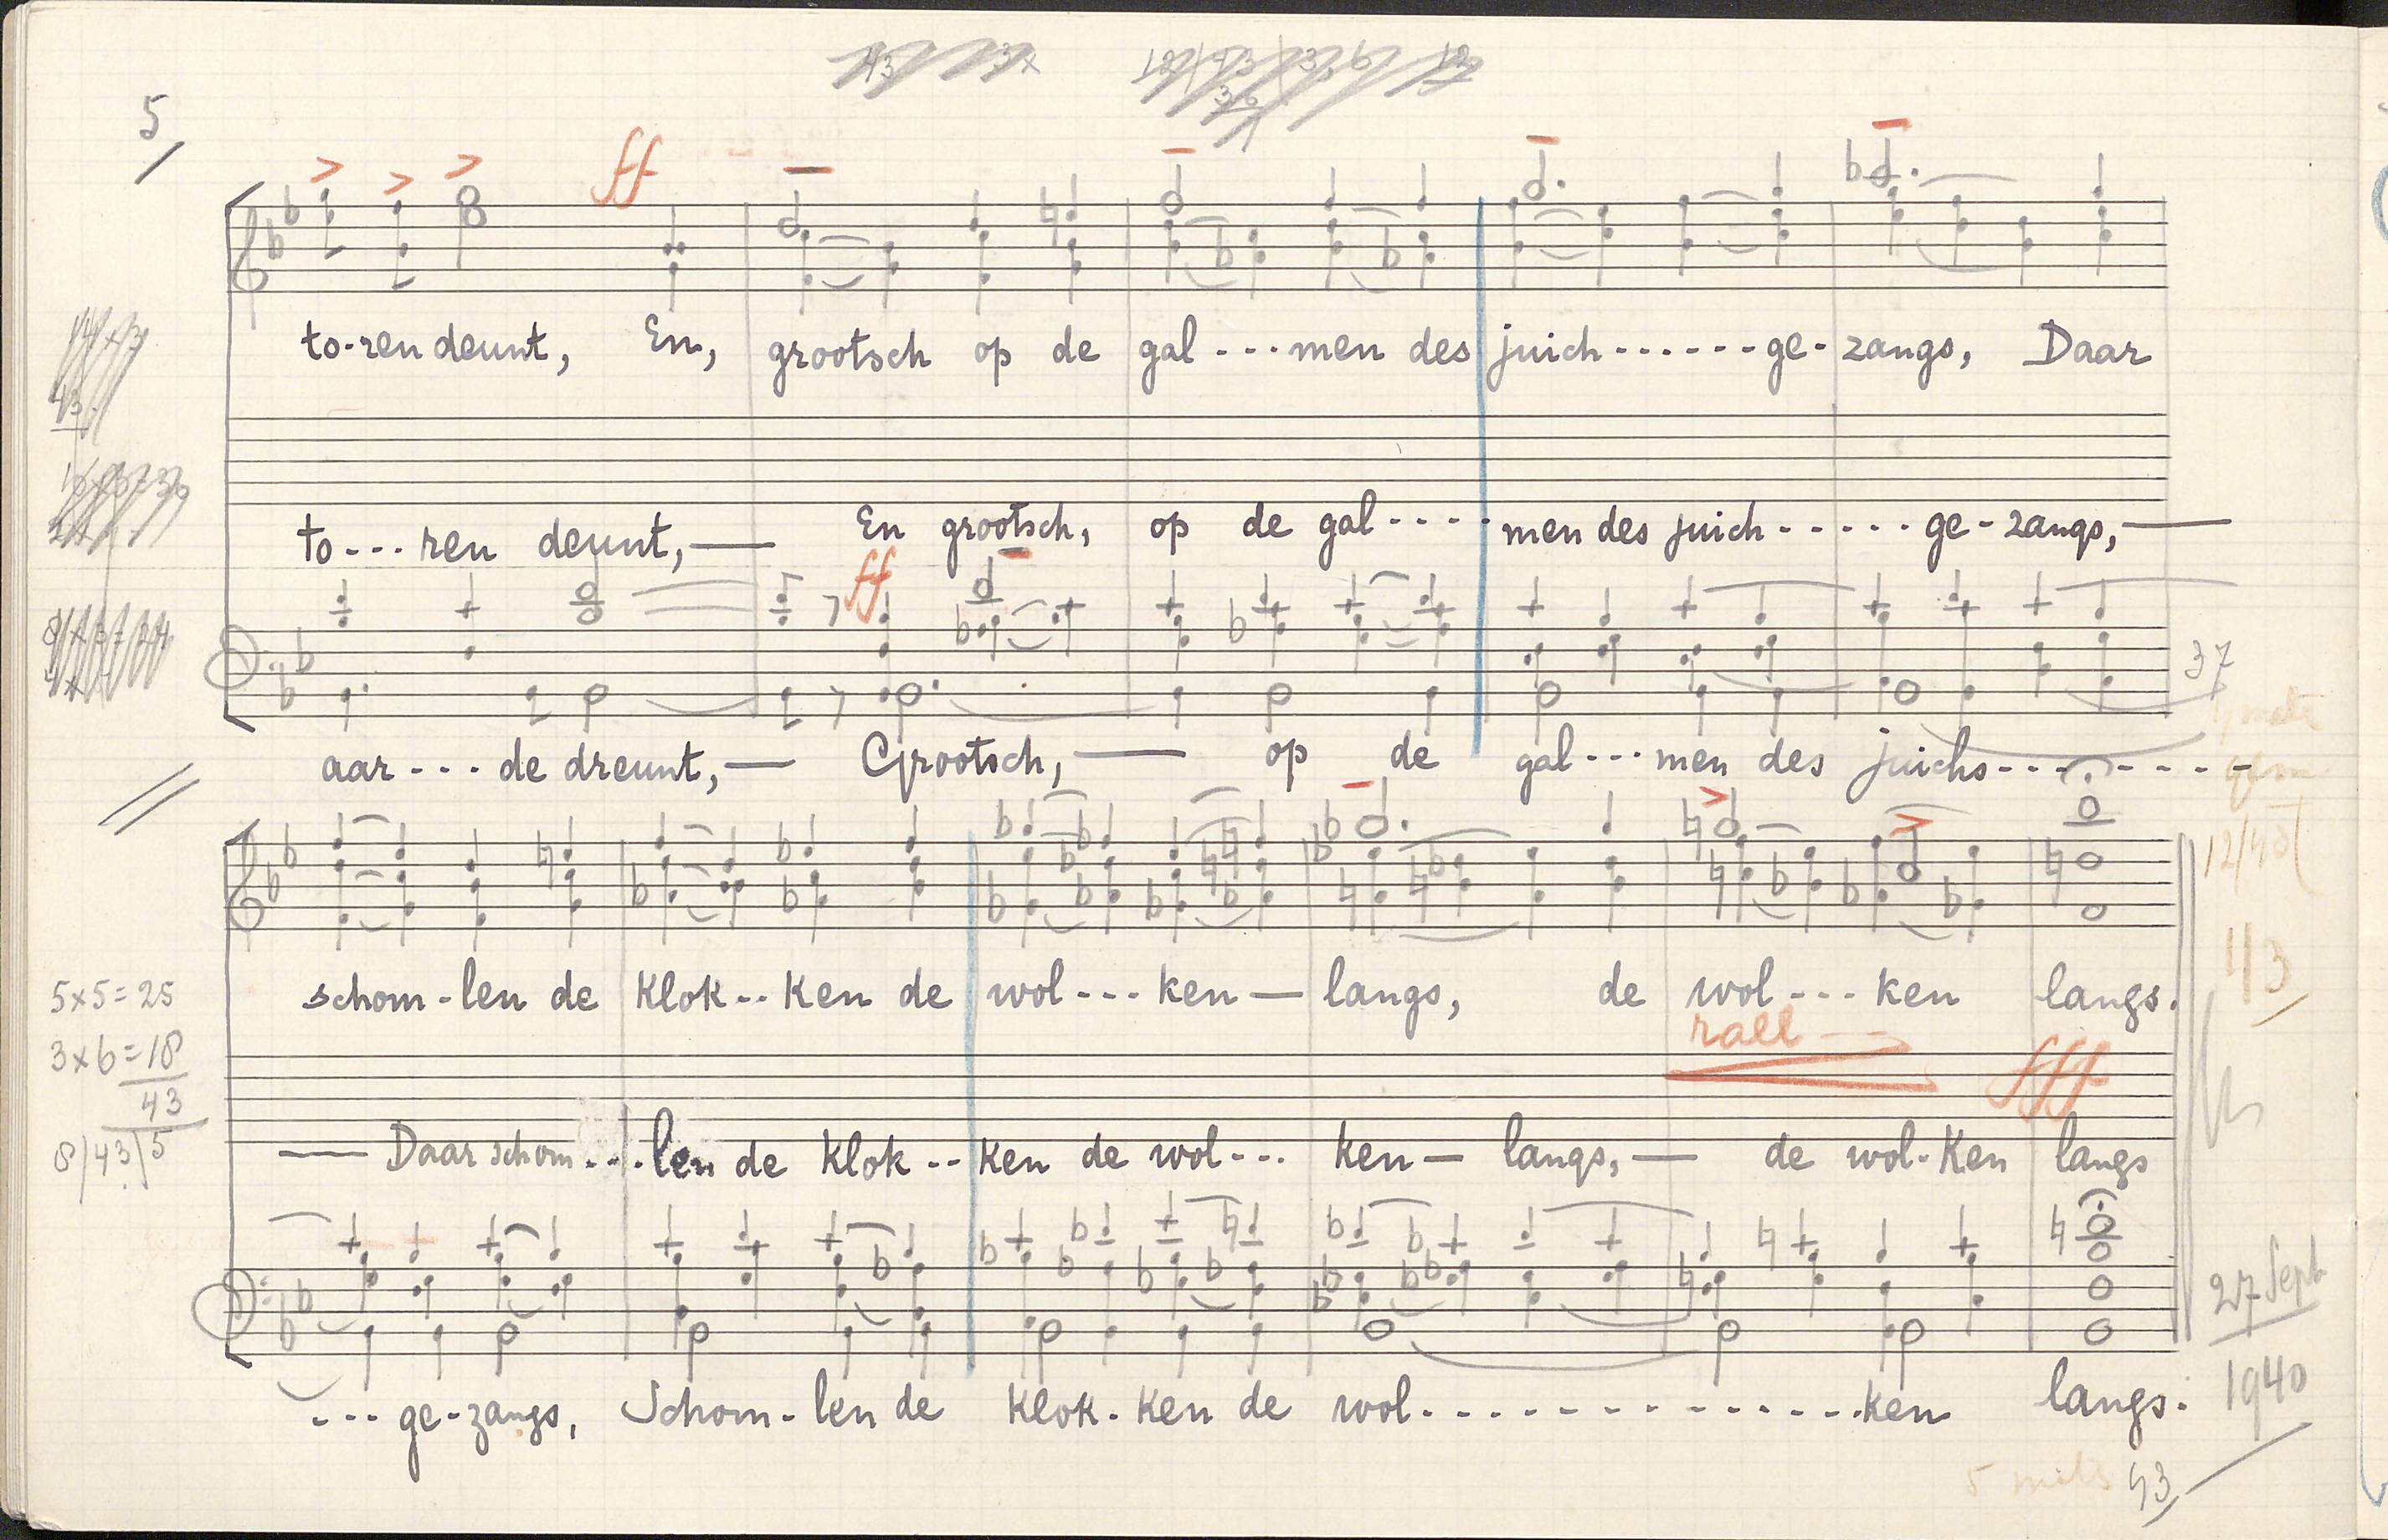 5
ff
to-ren deunt, En, grootsch op de gal---men des juich------ge-zangs, Daar
to---ren deunt,— En grootsch, op de gal----men des juich-----ge-zangs,—
ff
37
aar---de dreunt,— Grootsch,— op de gal---men des juichs--------
12/43
43
schom-len de klok--ken de wol---ken—langs, de wol---ken langs.
5x5=25
3x6=18
43
8/43\5
rall--
fff
— Daar schom---len de klok--ken de wol---ken—langs,— de wol-ken langs
27 Sept
1940
---ge-zangs, Schom-len de klok-ken de wol--------------ken langs.
43